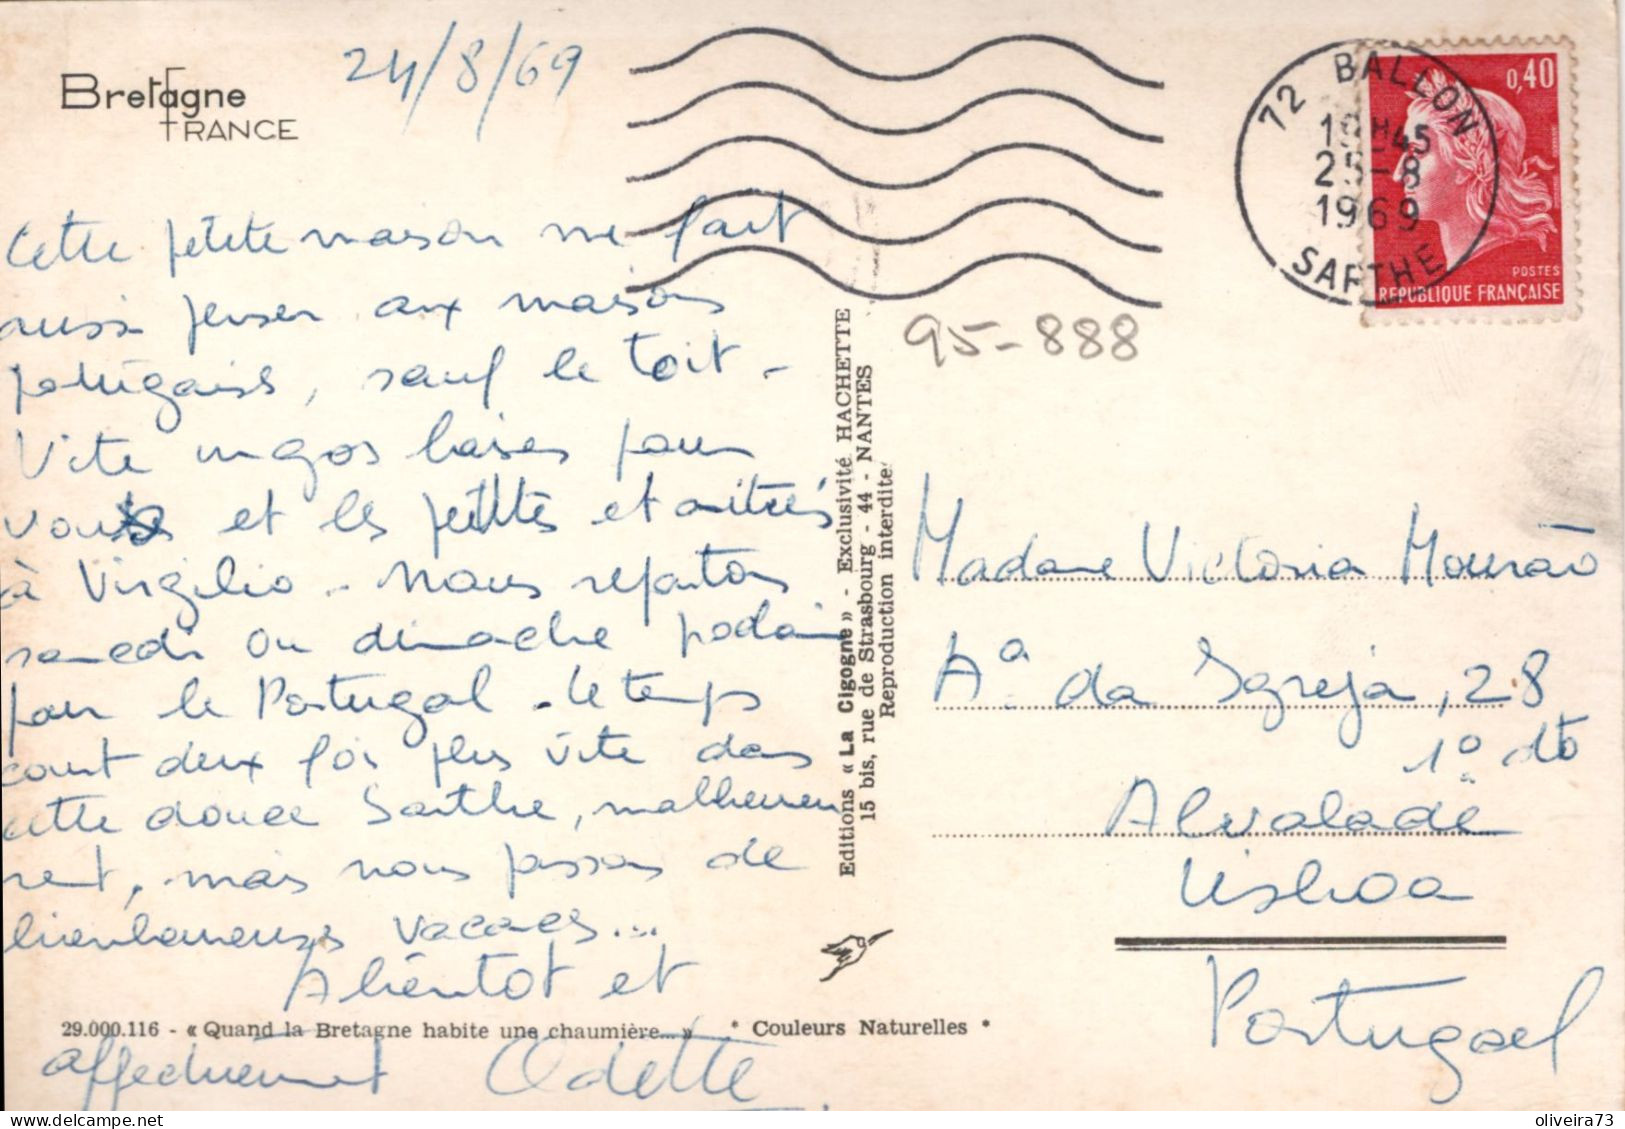 Bretagne
FRANCE
24/8/69
Cette petite maison me fait
aussi penser aux maisons
portugaises, sauf le toit -
Vite un gos baises pour
vous et les petites et amitiés
à Virgilio - Nous repartons
samedi ou dimache prochain
pour le Portugal - Le temps
court deux fois plus vite dans
cette douce Sarthe, malheureuse
ment, mais nous passons de
bienheureuses vacances...
A bientôt et
affectueusement Odette
29.000.116 - « Quand la Bretagne habite une chaumière... » * Couleurs Naturelles *
Editions « La Cigogne » - Exclusivité HACHETTE
15 bis, rue de Strasbourg - 44 - NANTES
Reproduction interdite
72 BALLON
19H45
25-8
1969
SARTHE
0,40
POSTES
REPUBLIQUE FRANÇAISE
95-888
Madame Victoria Mourão
Aª da Igreja, 28
1º dto
Alvalade
Lisboa
Portugal
oliveira73